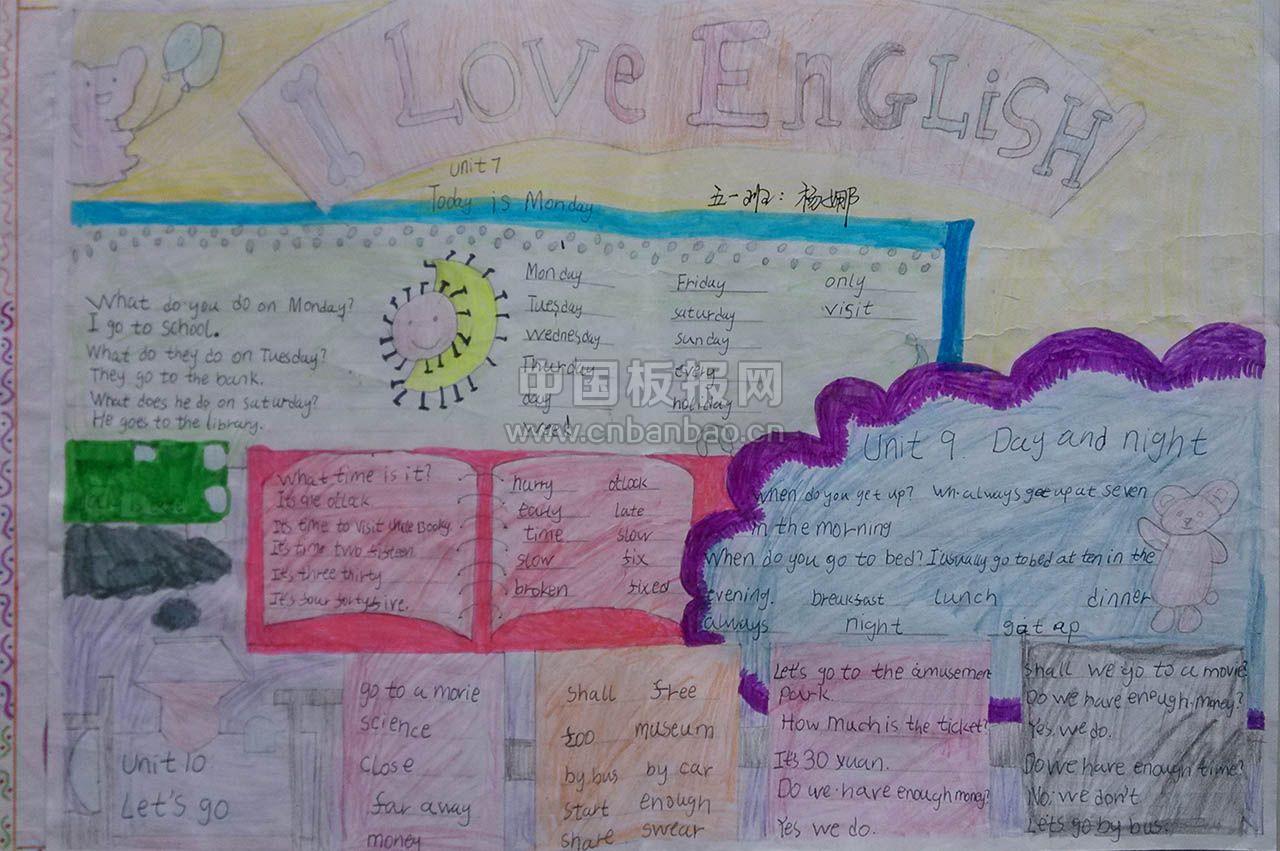 I LOVE EnGLiSH
unit 7
Today is Monday
五一班：杨娜
What do you do on Monday?
I go to school.
What do they do on Tuesday?
They go to the bank.
What does he do on saturday?
He goes to the library.
Monday
Tuesday
Wednesday
Thurday
day
weed
Friday
saturday
sunday
every
holiday
only
visit
中国板报网
www.cnbanbao.cn
What time is it?
It's one otlak
It's time to visit Uncle Booky.
It's time two fisteen
It's three thirty
It's four fortyfive.
hurry otlock
early late
time slow
slow fix
broken fixed
Unit 9. Day and night
When do you get up? Wh. always get up at seven
in the morning
When do you go to bed? I usually go to bed at ten in the
evening. breakfast lunch dinner
always night get ap
Unit 10
Let's go
go to a movie
science
close
far away
money
shall free
foo museum
by bus by car
start enough
share swear
Let's go to the amusement
park.
How much is the ticket?
It's 30 yuan.
Do we have enough money?
Yes we do.
shall we go to a movie?
Do we have enough money?
Yes we do.
Do we have enough time?
No, we don't
Let's go by bus.